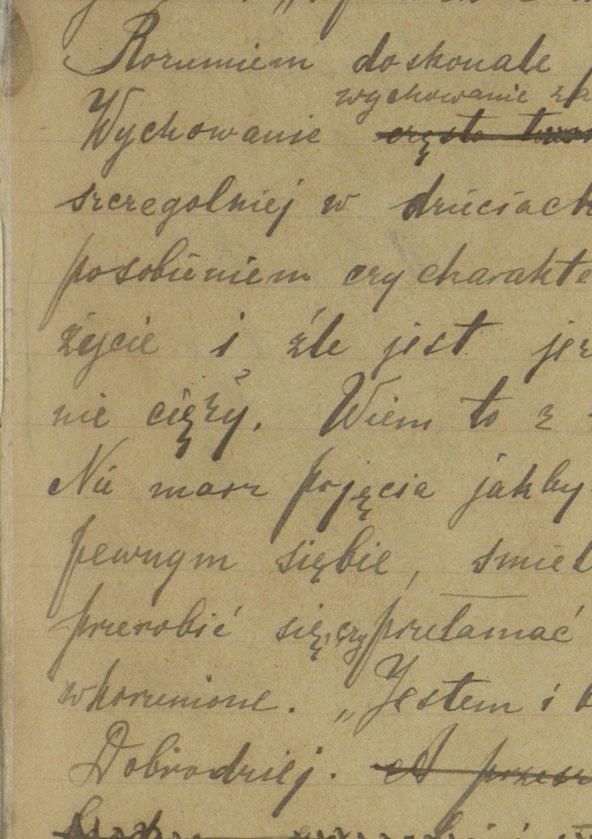 Rozumiem doskonale
wychowanie
Wychowanie często
szczegolniej w dzieciach
posobieniem czy charakte
życie i źle jest jez
nie cięży. Wiem to z
Nie masz pojęcia jakby
pewnym siębie, smieł
przerobić się, czy przełamać
wkorzenione. „Jestem i
Dobrodziej. A przesz